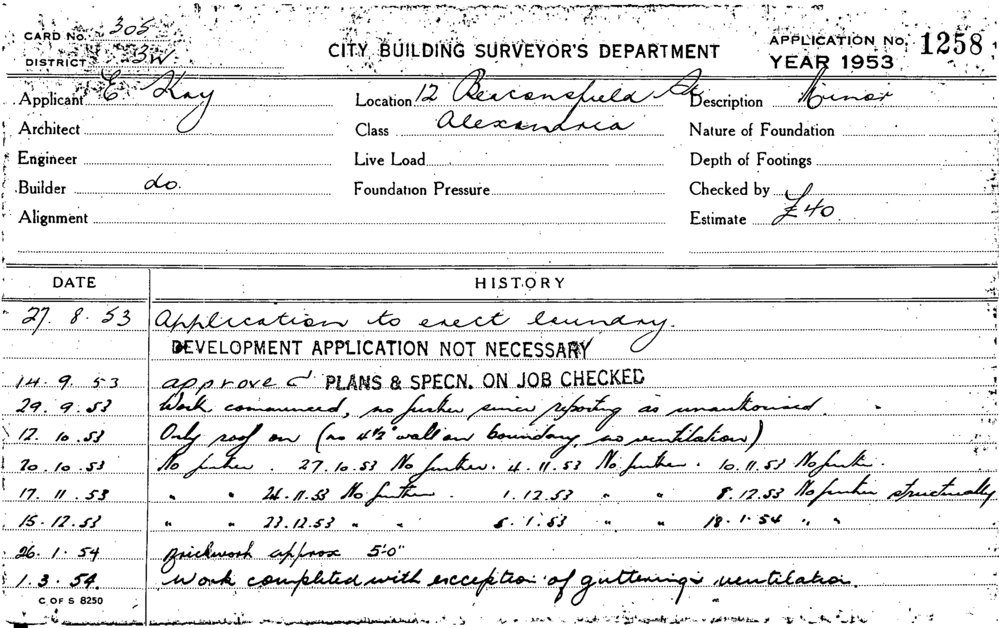 CARD No. 305
DISTRICT 3W
CITY BUILDING SURVEYOR'S DEPARTMENT
APPLICATION No. 1258
YEAR 1953
Applicant E. Kay Location 12 Beaconsfield St Description Minor
Architect Class Alexandria Nature of Foundation
Engineer Live Load Depth of Footings
Builder do. Foundation Pressure Checked by
Alignment Estimate £40
DATE HISTORY
27. 8. 53 Application to erect laundry.
DEVELOPMENT APPLICATION NOT NECESSARY
14. 9. 53 approved PLANS & SPECN. ON JOB CHECKED
29. 9. 53 Work commenced, no further since reporting as unauthorised.
12. 10. 53 Only roof on (no 4½" wall on boundary no ventilation)
20. 10. 53 No further. 27. 10. 53 No further. 4. 11. 53 No further. 10. 11. 53 No further.
17. 11. 53 " " 24. 11. 53 No further. 1. 12. 53 " " 8. 12. 53 No further structurally
15. 12. 53 " " 23. 12. 53 " " 5. 1. 53 " " 18. 1. 54 " "
26. 1. 54 Brickwork approx 5'0"
1. 3. 54. Work completed with exception of guttering & ventilation.
C OF S 8250